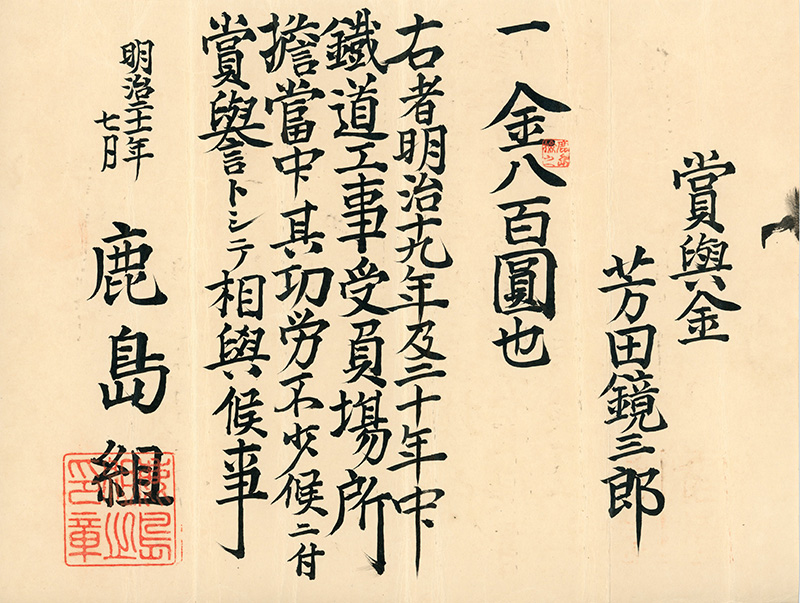 賞與金
芳田鏡三郎
一 金八百圓也
右者明治十九年及二十年中
鐵道工事受負場所
擔當中其功労不少候ニ付
賞與金トシテ相與候事
明治二十一年
七月
鹿島組
鹿島組之印章